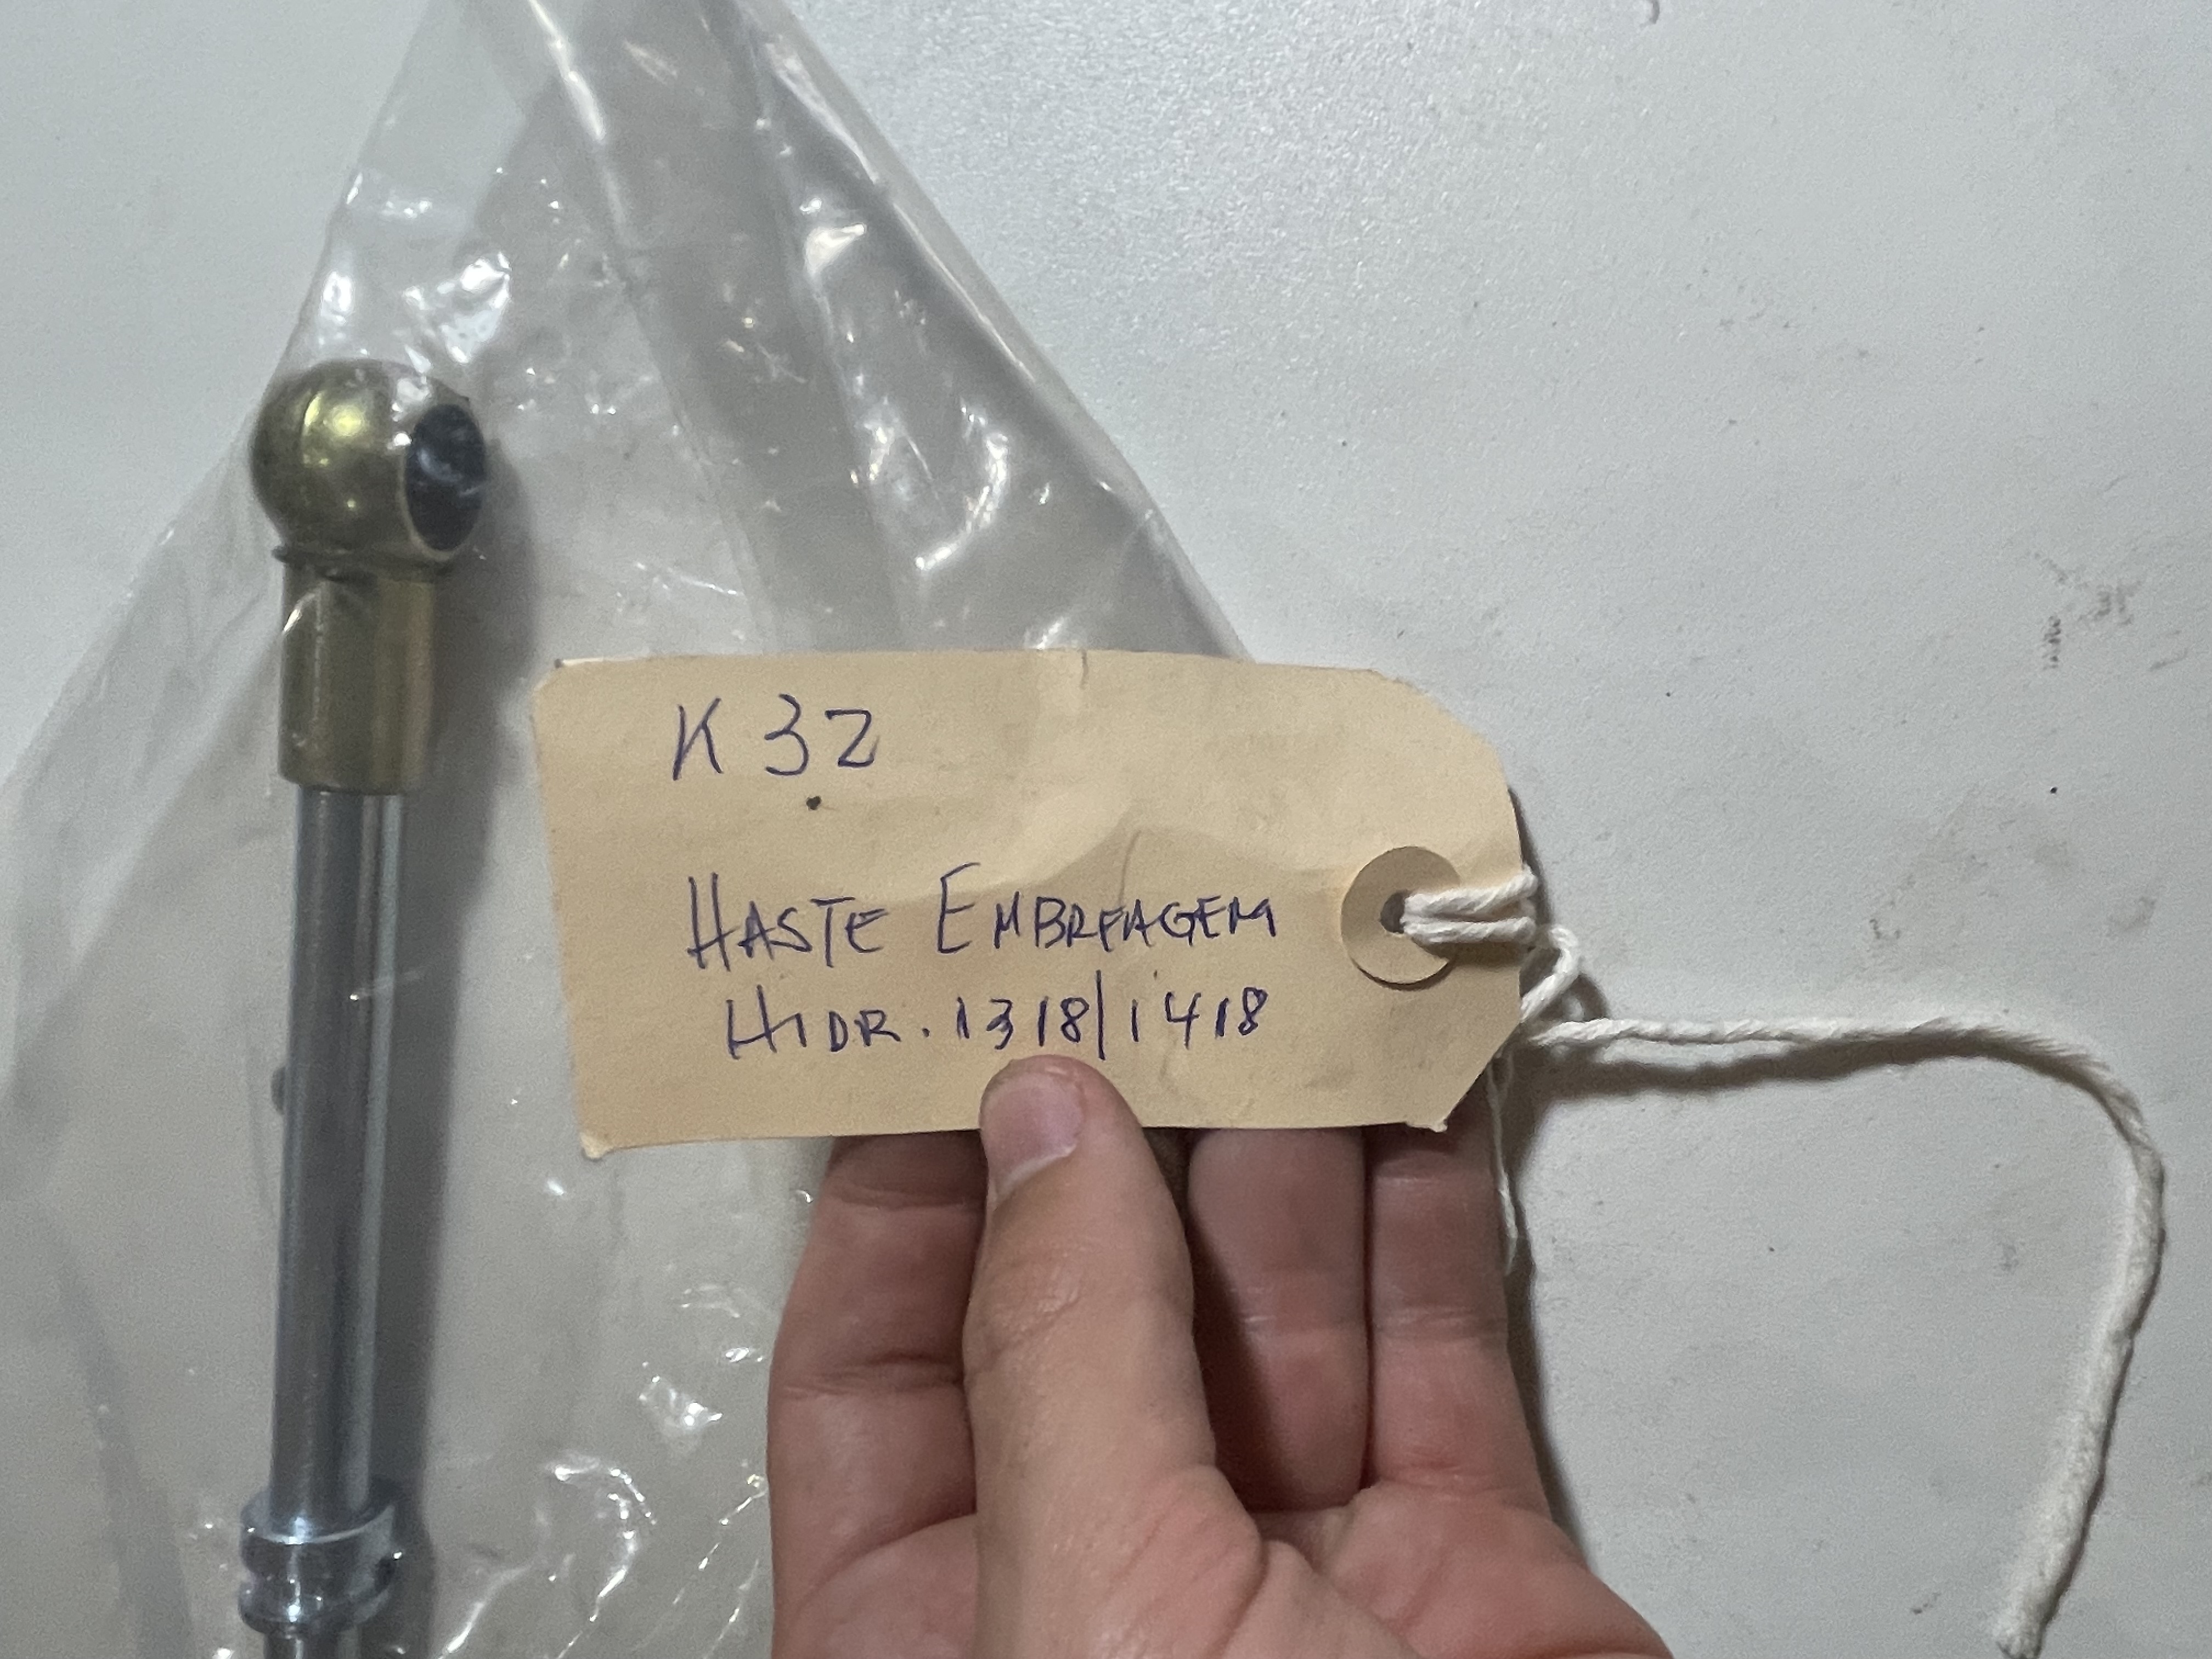 K32
HASTE EMBREAGEM
HIDR. 1318/1418